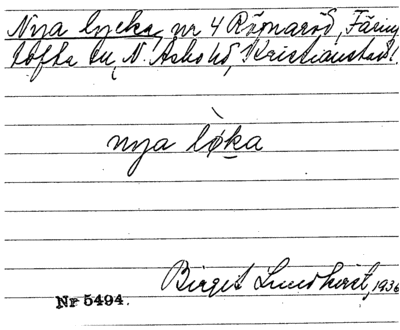 Nya lycka, nr 4 Röynaröd, Färing
tofta sn, N. Åsbo hd, Kristianstads l.
nya lø̀ka
Birgit Lundkvist, 1936
Nr 5494.